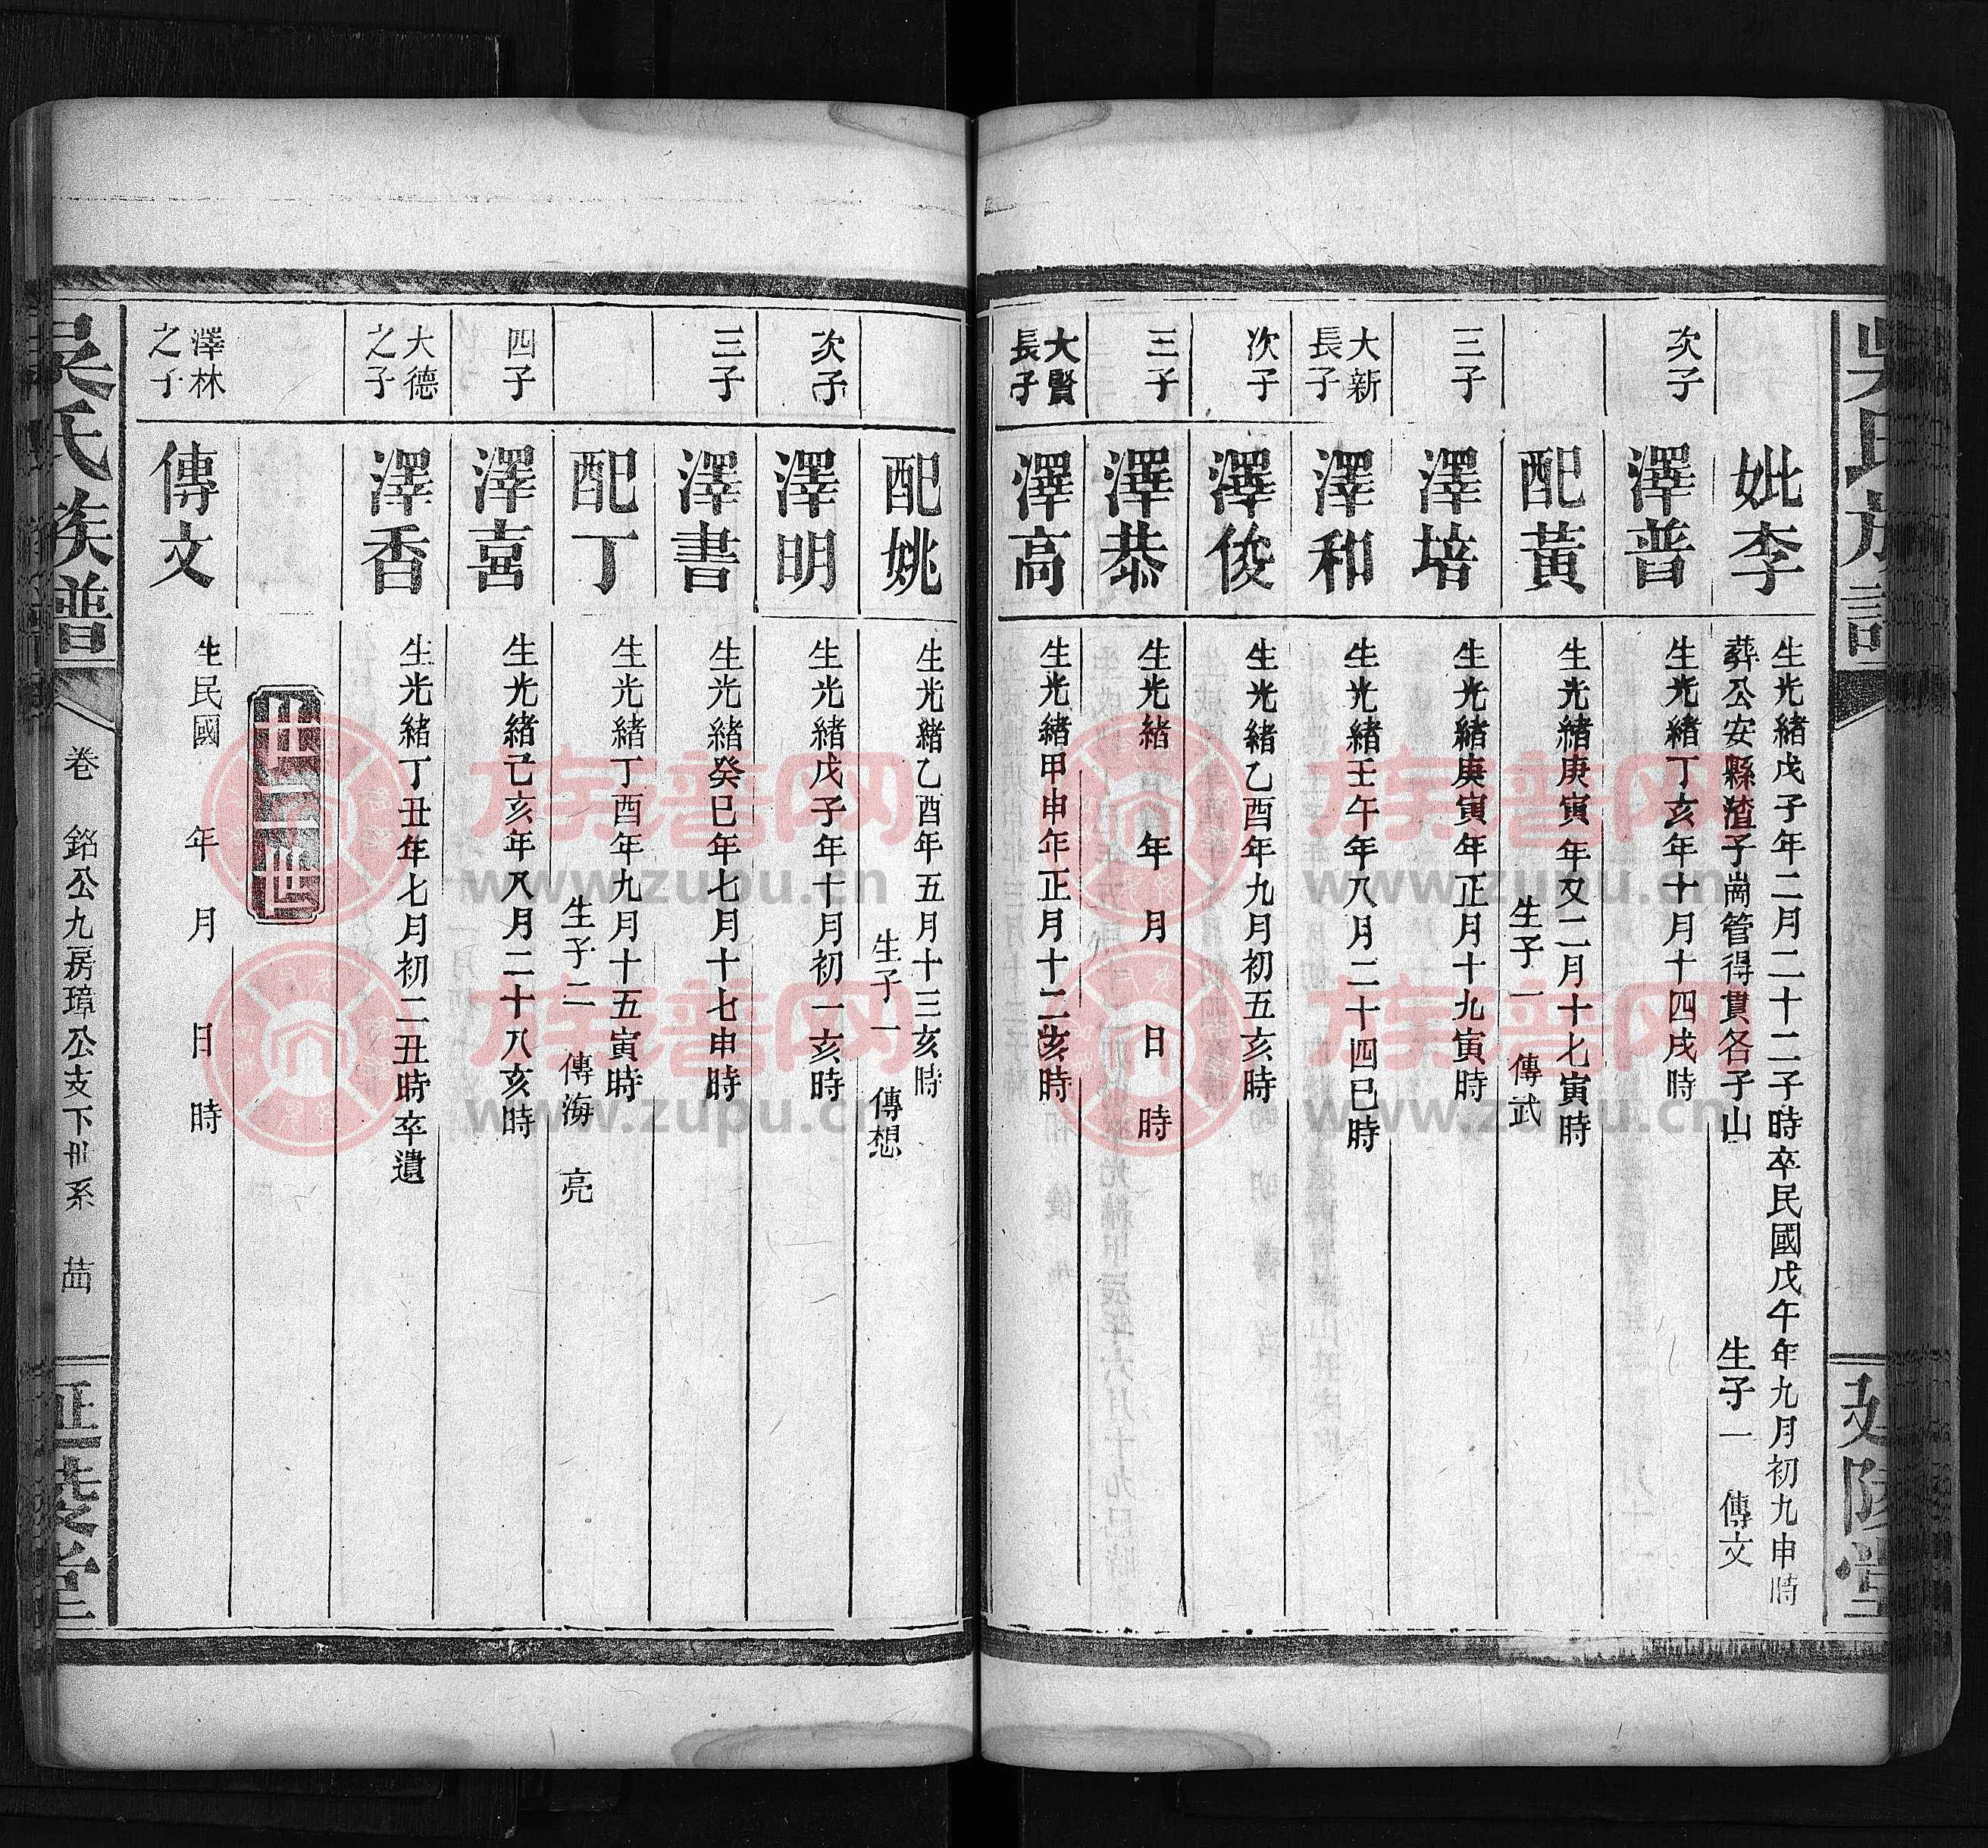 吳氏族譜
延陵堂
妣李
生光緒戊子年二月二十二子時卒民國戊午年九月初九申時
葬公安縣渣子崗管得貫各子山 生子一 傳文
次子
澤普
生光緒丁亥年十月十四戌時
配黃
生光緒庚寅年又二月十七寅時
生子一 傳武
三子
澤培
生光緒庚寅年正月十九寅時
大新
長子
澤和
生光緒壬午年八月二十四巳時
次子
澤俊
生光緒乙酉年九月初五亥時
三子
澤恭
生光緒 年 月 日 時
大賢
長子
澤高
生光緒甲申年正月十二亥時
配姚
生光緒乙酉年五月十三亥時
生子一 傳想
次子
澤明
生光緒戊子年十月初一亥時
三子
澤書
生光緒癸巳年七月十七申時
配丁
生光緒丁酉年九月十五寅時
生子二 傳海 亮
四子
澤喜
生光緒己亥年八月二十八亥時
大德
之子
澤香
生光緒丁丑年七月初二丑時卒遺
卌一世
澤林
之子
傳文
生民國 年 月 日 時
吳氏族譜
卷 銘公九房璋公支下卌系
延陵堂
族普网
www.zupu.cn
族普网
www.zupu.cn
族普网
www.zupu.cn
族普网
www.zupu.cn